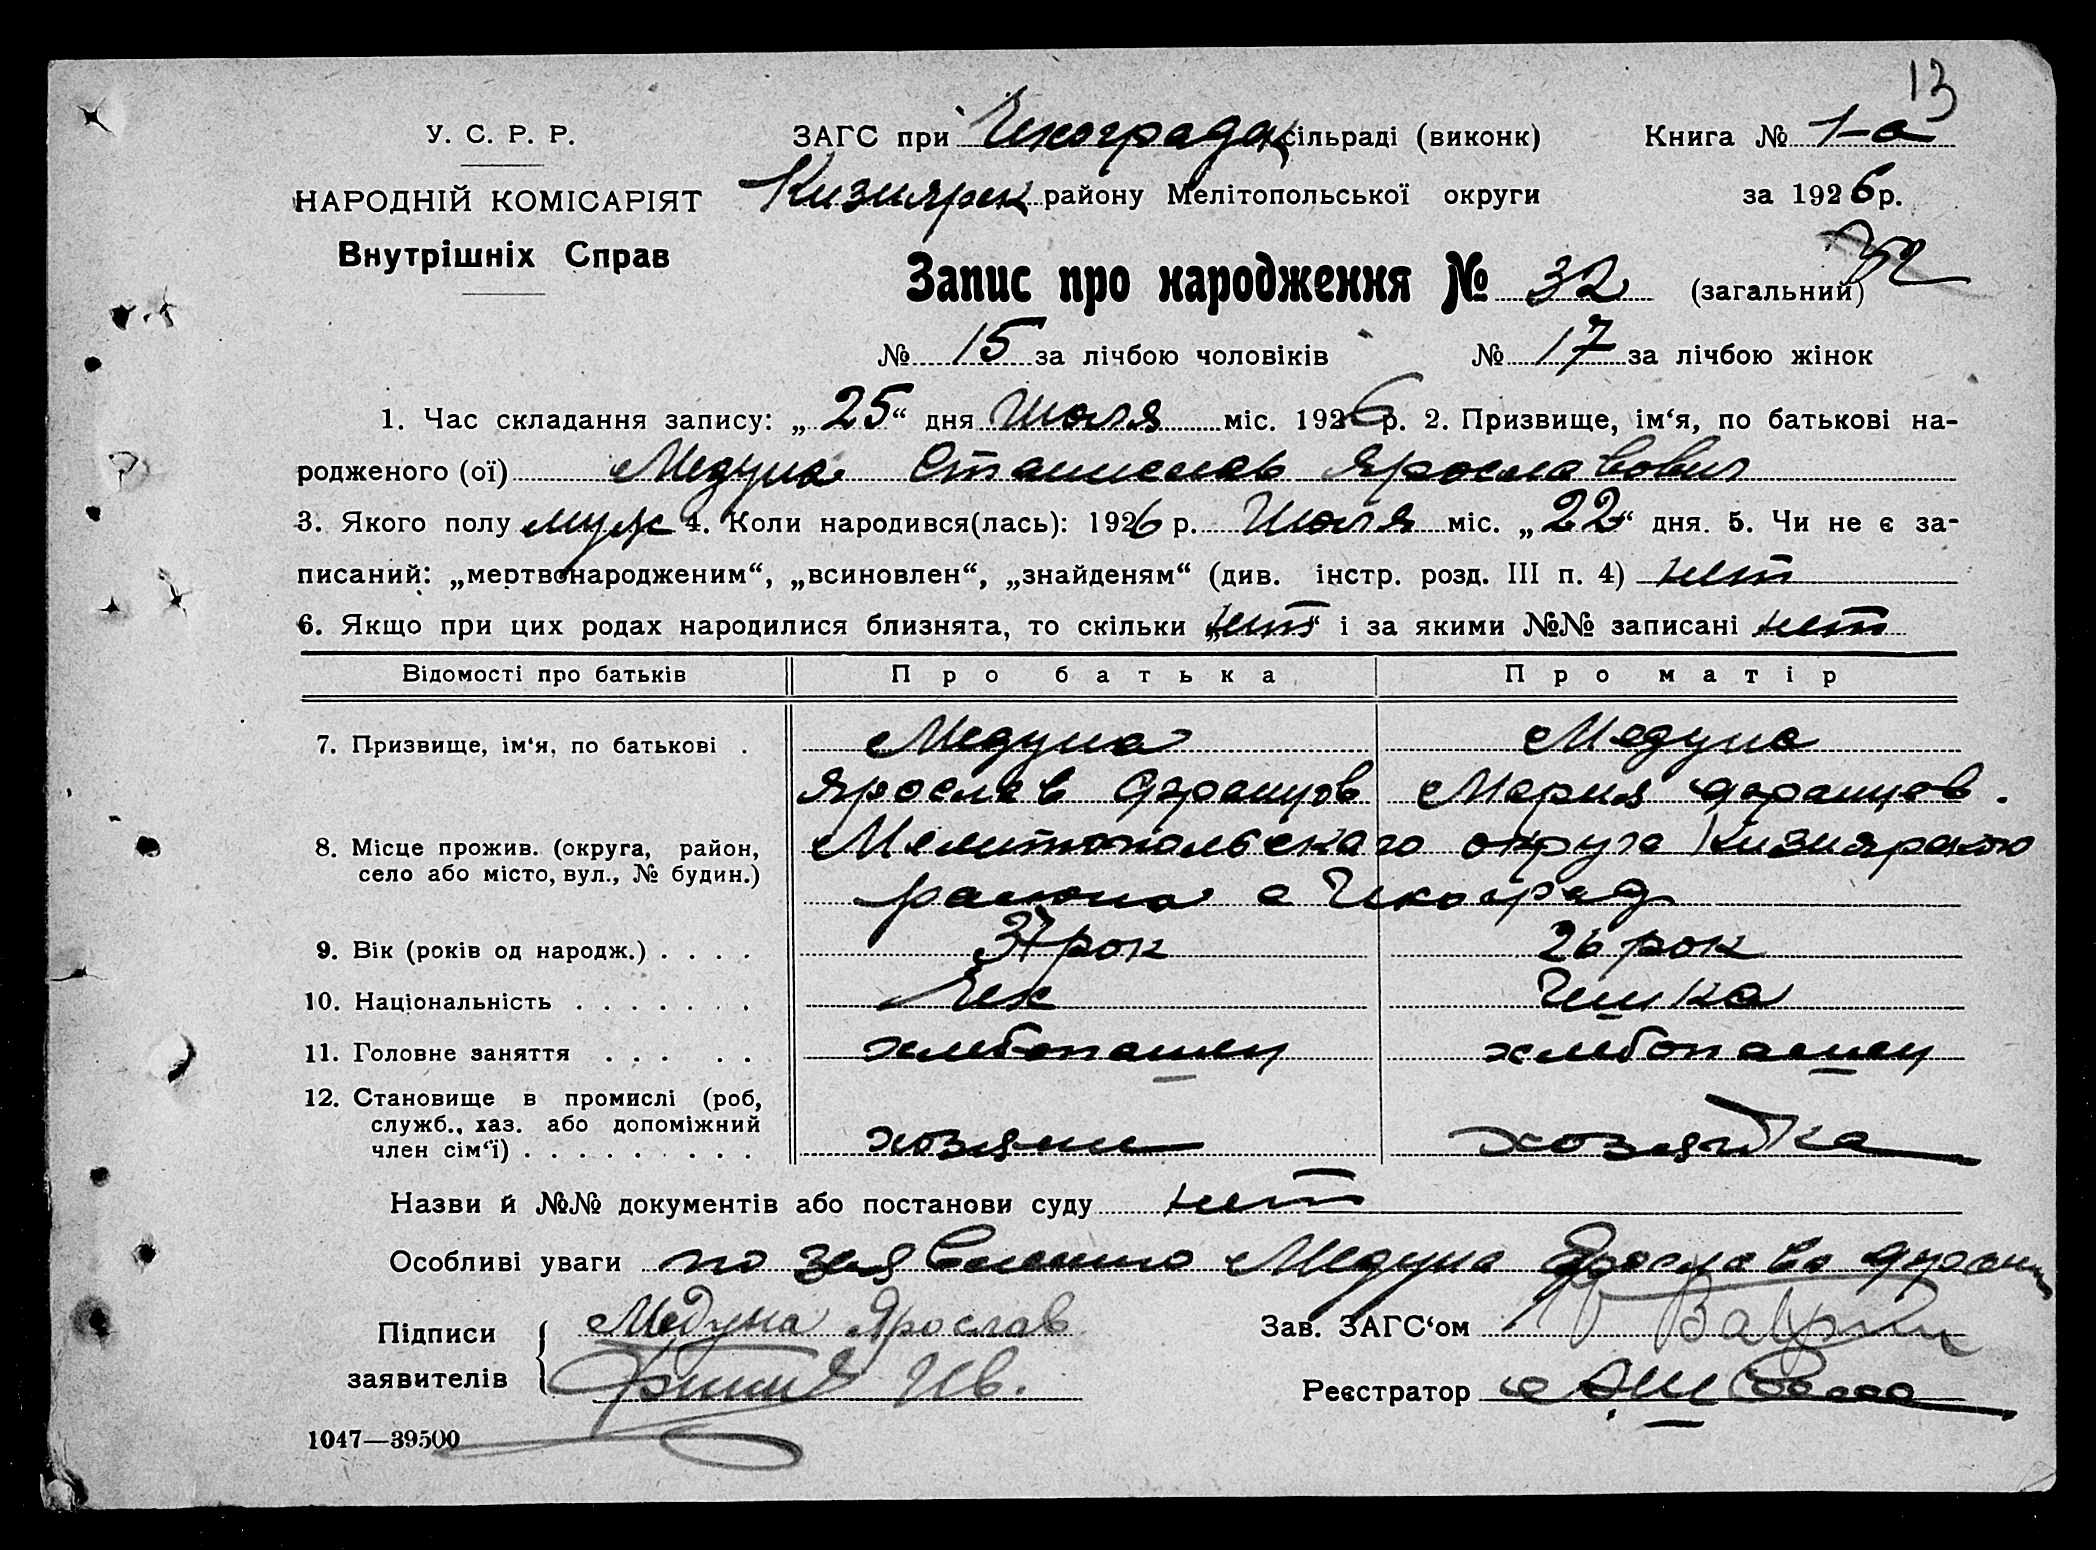 13
У. С. Р. Р.
ЗАГС при Чехоградс сільраді (виконк)
Книга № 1-а
НАРОДНІЙ КОМІСАРІЯТ
Кизиярск району Мелітопольської округи
за 1926 р.
Внутрішніх Справ
32
Запис про народження № 32 (загальний)
№ 15 за лічбою чоловіків № 17 за лічбою жінок
1. Час складання запису: „25“ дня Июля міс. 1926 р. 2. Призвище, ім‘я, по батькові на-
родженого (ої) Медуна Станислав Ярославович
3. Якого полу муж 4. Коли народився(лась): 1926 р. Июля міс. „22“ дня. 5. Чи не є за-
писаний: „мертвонародженим“, „всиновлен“, „знайденям“ (див. інстр. розд. III п. 4) нет
6. Якщо при цих родах народилися близнята, то скільки „нет“ і за якими №№ записані нет
Відомості про батьків Про батька Про матір
7. Призвище, ім‘я, по батькові . Медуна Медуна
Ярослав Францов Мария Францов.
8. Місце прожив. (округа, район, Мелитопольскаго округа Кизиярского
село або місто, вул., № будин.) района с Чехоград
9. Вік (років од народж.) . . . . 37 рок 26 рок
10. Національність . . . . . . . Чех Чешка
11. Головне заняття . . . . . хлебопашец хлебопашец
12. Становище в промислі (роб,
служб., хаз. або допоміжний
член сім‘ї) . . . . . . . . . хозяин хозяйка
Назви й №№ документів або постанови суду нет
Особливі уваги по заявлению Медуна Ярослава Франц
Підписи Медуна Ярослав
Зав. ЗАГС‘ом
заявителів Ив.
Реєстратор
1047—39500